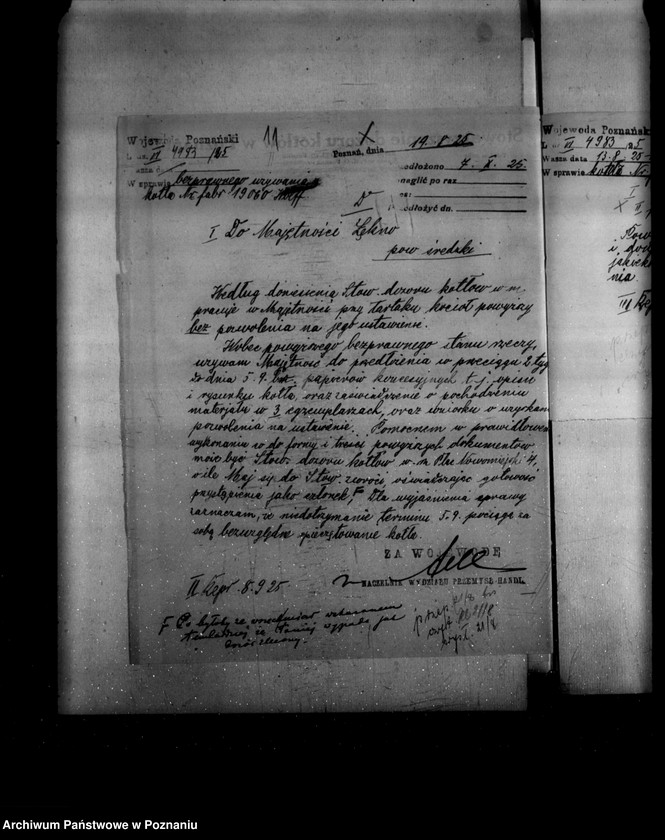 Wojewoda Poznański
L. dz. VI 4983 /25
11
Poznań, dnia 19.8.25
W sprawie bezprawnego używania
kotła Nr fabr 13060
Przedłożono 7. X. 25.
naglić po raz
odłożyć dn.
I Do Majętności
pow średzki
Według doniesienia Stow. dozoru kotłów w m.
pracuje w Majętności przy tartaku kocioł powyższy
bez pozwolenia na jego ustawienie.
Wobec powyższego bezprawnego stanu rzeczy,
wzywam Majętność do przedłożenia w przeciągu 2 tyg.
do dnia 5.9. br. papierów koncesyjnych t. j. opisu
i rysunku kotła, oraz zaświadczenie o pochodzeniu
materjału w 3 egzemplarzach, oraz wniosku o uzyskanie
pozwolenia na ustawienie. Pomocnem w prawidłowem
wykonaniu co do formy i treści powyższych dokumentów
może być Stow. dozoru kotłów w m. Plac Nowomiejski 4,
o ile Maj. się do Stow. zwróci, oświadczając gotowość
przystąpienia jako członek. F Dla wyjaśnienia sprawy
zaznaczam, że niedotrzymanie terminu 5.9. pociąga za
sobą bezwzględne opieczętowanie kotła.
ZA WOJEWODĘ
NACZELNIK WYDZIAŁU PRZEMYSŁ-HANDL.
II Kzpt. 8.9.25
F Co byłoby ze
taniej wypada jak
Wojewoda Poznański
L. dz. VI 4983 /25
Wasza data 13.8.25
W sprawie kotła Nr.
I
X II
Pow
i do
nia.
III Kzp
Archiwum Państwowe w Poznaniu